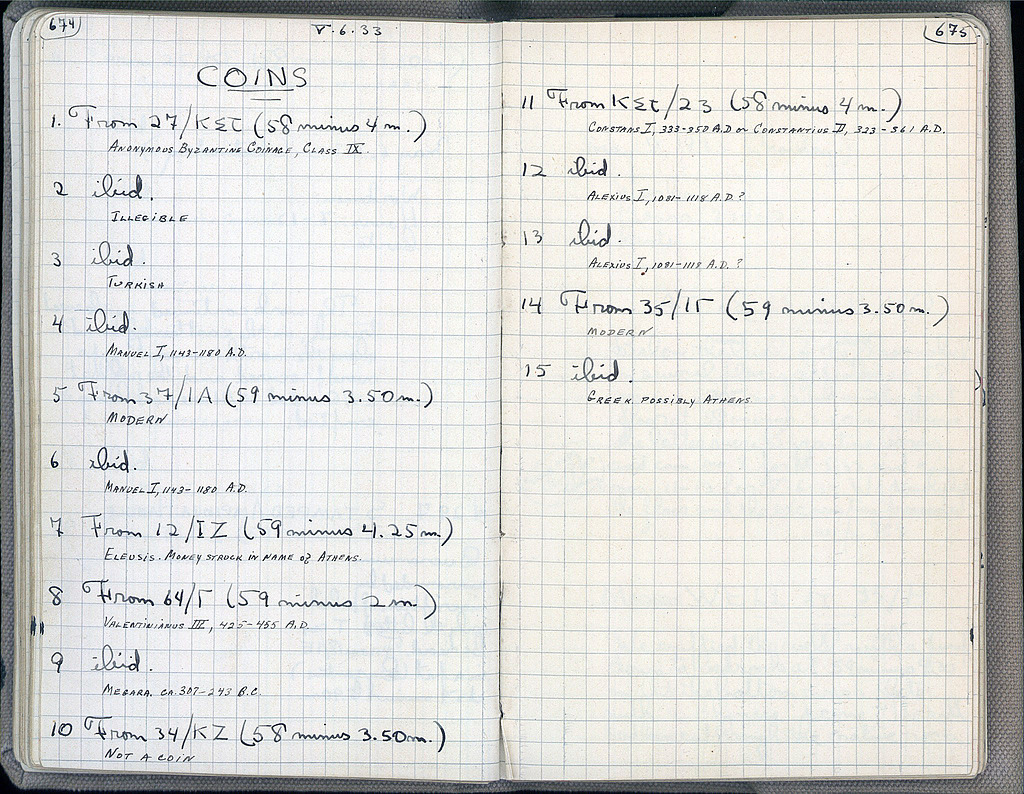 674
V.6.33
COINS
1. From 27/ΚΣΤ (58 minus 4 m.)
ANONYMOUS BYZANTINE COINAGE, CLASS IX.
2 ibid.
ILLEGIBLE
3 ibid.
TURKISH
4 ibid.
MANUEL I, 1143-1180 A.D.
5 From 37/ΙΑ (59 minus 3.50 m.)
MODERN
6 ibid.
MANUEL I, 1143-1180 A.D.
7 From 12/ΙΖ (59 minus 4.25 m.)
ELEUSIS. MONEY STRUCK IN NAME OF ATHENS.
8 From 64/Γ (59 minus 2 m.)
VALENTINIANUS III, 425-455 A.D.
9 ibid.
MEGARA. CA. 307-243 B.C.
10 From 34/ΚΖ (58 minus 3.50 m.)
NOT A COIN
675
11 From ΚΣΤ/23 (58 minus 4 m.)
CONSTANS I, 333-350 A.D OR CONSTANTIUS II, 323-361 A.D.
12 ibid.
ALEXIUS I, 1081-1118 A.D.?
13 ibid.
ALEXIUS I, 1081-1118 A.D.?
14 From 35/ΙΓ (59 minus 3.50 m.)
MODERN
15 ibid.
GREEK. POSSIBLY ATHENS.